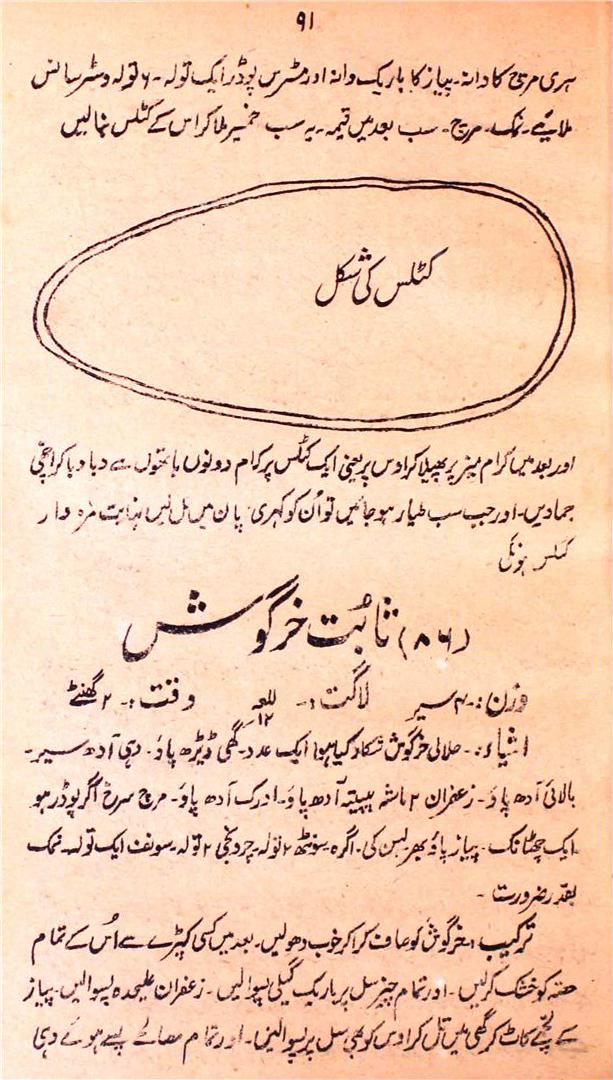 ۹۱
ہری مرچ کا دانہ۔ پیاز کا باریک دانہ اور مٹرس پوڈر ایک تولہ۔ ۶ تولہ وسٹر سائس
ملائیے۔ نمک۔ مرچ۔ سب بعد میں قیمہ۔ یہ سب خمیر ملا کر اس کے کٹلس بنالیں
کٹلس کی شکل
اور بعد میں کرام میز پر پھیلا کر اوس پر یعنی ایک کٹلس پر کرام دونوں ہاتھوں سے دبا دبا کر اچھی
جمادیں۔ اور جب سب طیار ہو جائیں تو اُن کو کہری پان میں تل لیں نہایت مزہ دار
کٹلس ہونگی
(۸۶) ثابُت خرگوش
وزن:۔ ۴ سیر لاگت:۔ وقت:۔ ۲ گھنٹے
اشیاء:۔ حلالی خرگوش شکار کیا ہوا ایک عدد۔ گھی ڈیڑھ پاؤ۔ دہی آدھ سیر۔
بالائی آدھ پاؤ۔ زعفران ۲ ماشہ پپیتہ آدھ پاؤ۔ ادرک آدھ پاؤ۔ مرچ سرخ اگر پوڈر ہو
ایک چھٹانک۔ پیاز پاؤ بھر لہسن کی۔ اگرہ۔ سونٹھ ۲ تولہ۔ چرونجی ۲ تولہ۔ سونف ایک تولہ۔ نمک
بقدر ضرورت۔
ترکیب:۔ خرگوش کو صاف کرا کر خوب دھولیں۔ بعد میں کسی کپڑے سے اُس کے تمام
حصہ کو خشک کرلیں۔ اور تمام چیز سل پر باریک گیلی پسوالیں۔ زعفران علیحدہ پسوالیں۔ پیاز
کے لچھے کاٹ کر گھی میں تل کر اوس کو بھی سل پر پسوالیں۔ اور تمام مصالحے پسے ہوئے دہی